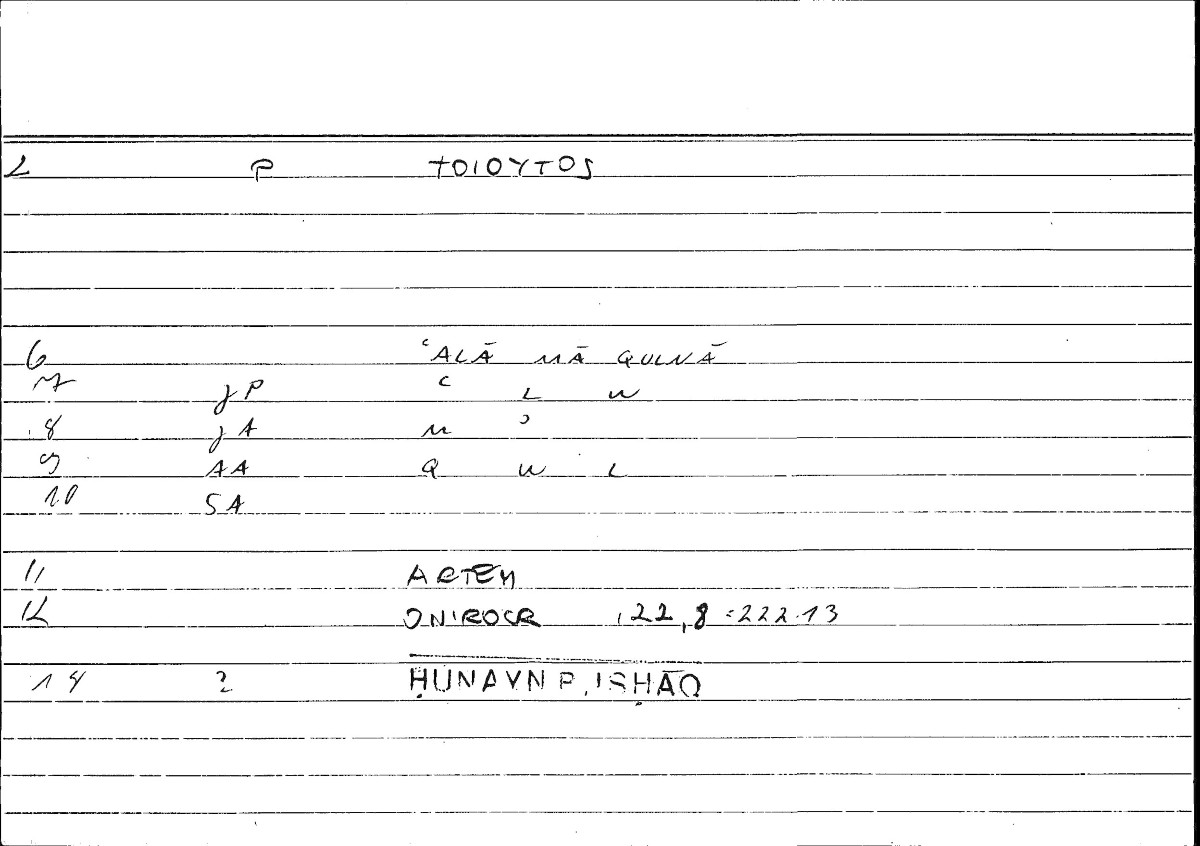 2 P ΤΟΙΟΥΤΟS
6 ʿALĀ MĀ QULNĀ
7 JP ʿ L W
8 JA M ʾ
9 AA Q W L
10 SA
11 ARTEM
12 ONIROCR 1,22,8 = 222.13
14 2 ḤUNAYN P, ISḤĀQ